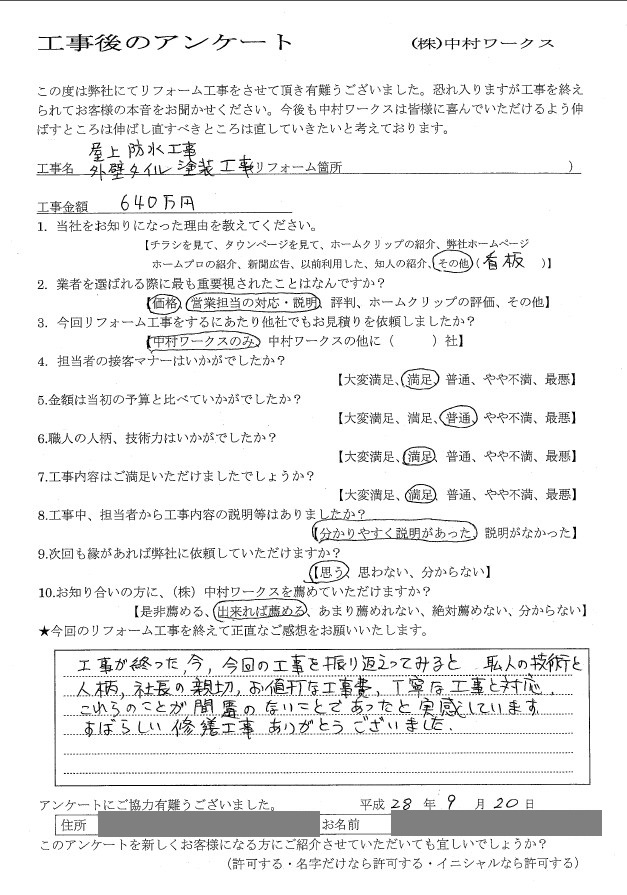 工事後のアンケート　(株)中村ワークス
この度は弊社にてリフォーム工事をさせて頂き有難うございました。恐れ入りますが工事を終え
られてお客様の本音をお聞かせください。今後も中村ワークスは皆様に喜んでいただけるよう伸
ばすところは伸ばし直すべきところは直していきたいと考えております。
屋上防水工事
工事名 外壁タイル塗装工事リフォーム箇所　)
工事金額 640万円
1. 当社をお知りになった理由を教えてください。
【チラシを見て、タウンページを見て、ホームクリップの紹介、弊社ホームページ
ホームプロの紹介、新聞広告、以前利用した、知人の紹介、その他（看板　)】
2. 業者を選ばれる際に最も重要視されたことはなんですか？
【価格、営業担当の対応・説明、評判、ホームクリップの評価、その他】
3. 今回リフォーム工事をするにあたり他社でもお見積りを依頼しましたか？
【中村ワークスのみ、中村ワークスの他に（　　）社】
4. 担当者の接客マナーはいかがでしたか？
【大変満足、満足、普通、やや不満、最悪】
5.金額は当初の予算と比べていかがでしたか？
【大変満足、満足、普通、やや不満、最悪】
6.職人の人柄、技術力はいかがでしたか？
【大変満足、満足、普通、やや不満、最悪】
7.工事内容はご満足いただけましたでしょうか？
【大変満足、満足、普通、やや不満、最悪】
8.工事中、担当者から工事内容の説明等はありましたか？
【分かりやすく説明があった、説明がなかった】
9.次回も縁があれば弊社に依頼していただけますか？
【思う、思わない、分からない】
10.お知り合いの方に、（株）中村ワークスを薦めていただけますか？
【是非薦める、出来れば薦める、あまり薦めれない、絶対薦めない、分からない】
★今回のリフォーム工事を終えて正直なご感想をお願いいたします。
工事が終った,今,今回の工事を振り返えってみると 人の技術と
人柄,社長の親切,お値打な工事費,丁寧な工事と対応,
これらのことが間違のないことであったと実感しています
すばらしい修繕工事ありがとうございました.
アンケートにご協力有難うございました。　平成 28 年 9 月 20 日
住所　お名前
このアンケートを新しくお客様になる方にご紹介させていただいても宜しいでしょうか？
（許可する・名字だけなら許可する・イニシャルなら許可する）